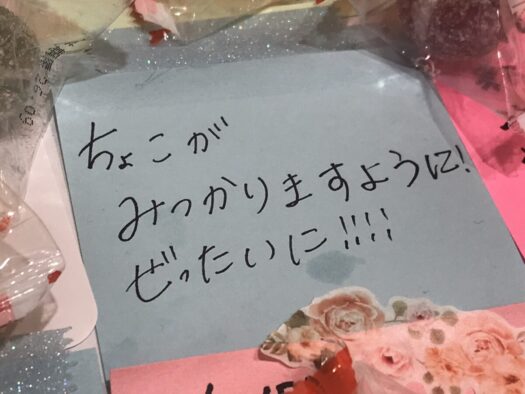 ちょこが
みつかりますように!
ぜったいに!!!!